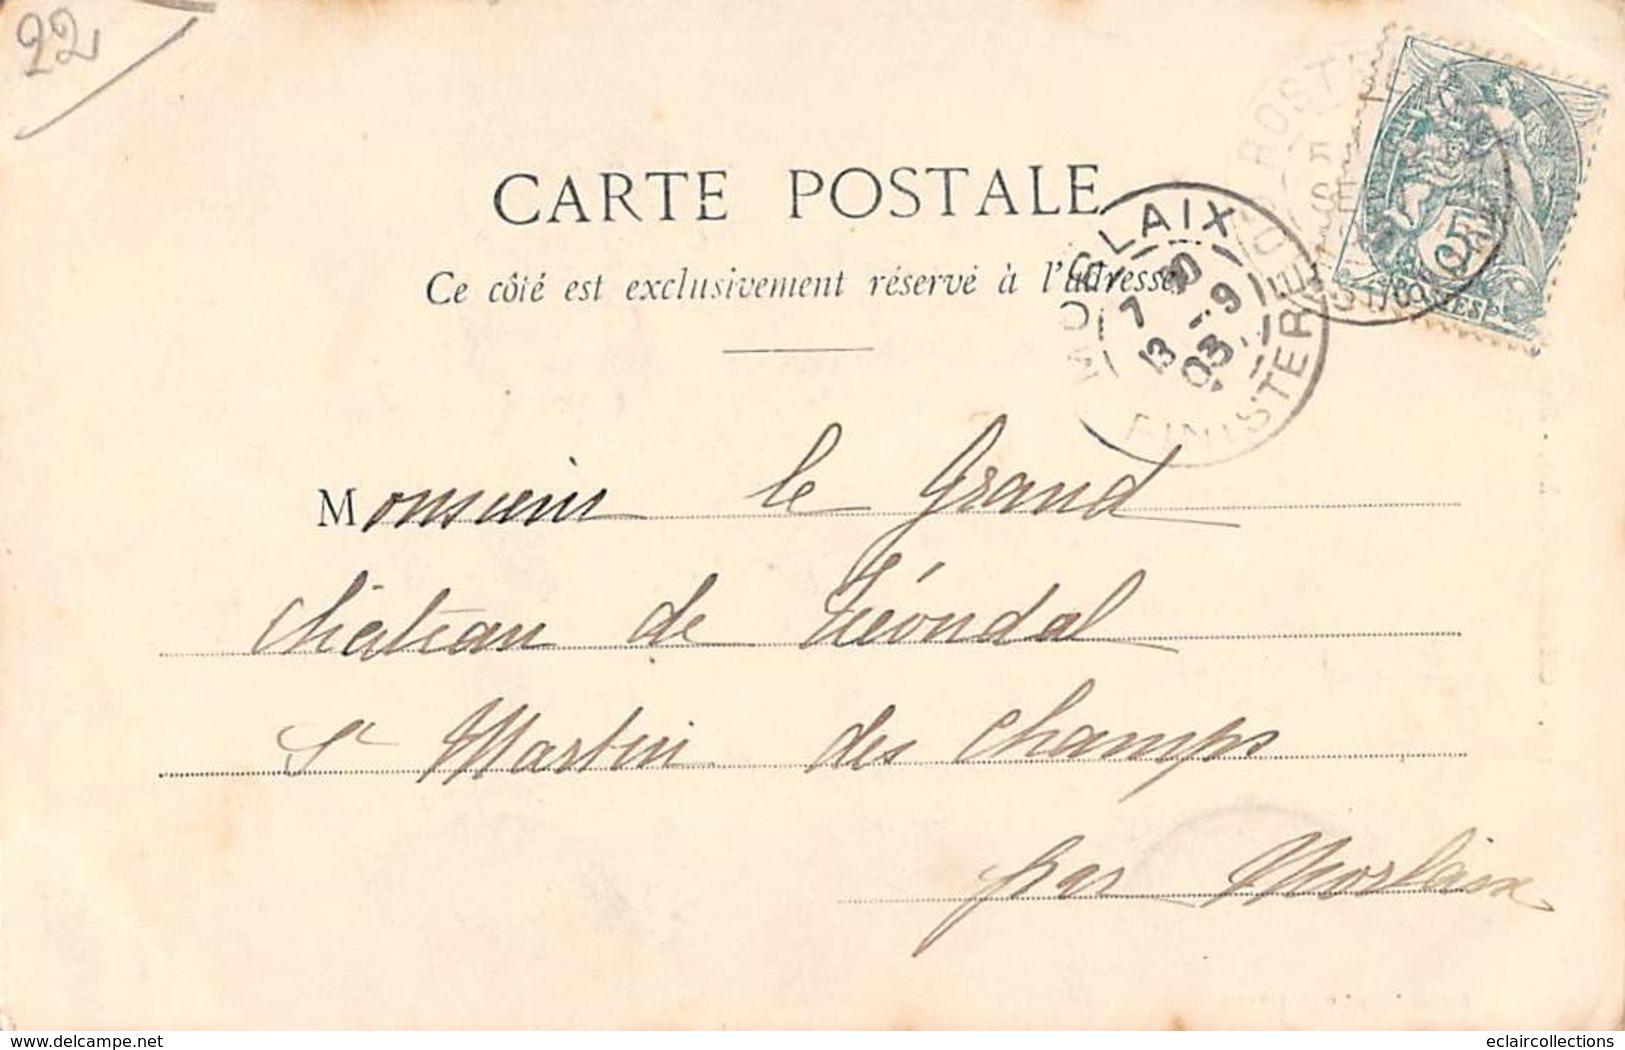 22
CARTE POSTALE
Ce côté est exclusivement réservé à l'adresse
MORLAIX
7 30
13 -9
03
FINISTERE
ROST
SE
5
Monsieur le Grand
Château de
St Martin des Champs
par Morlaix
delcampe.net
eclaircollections